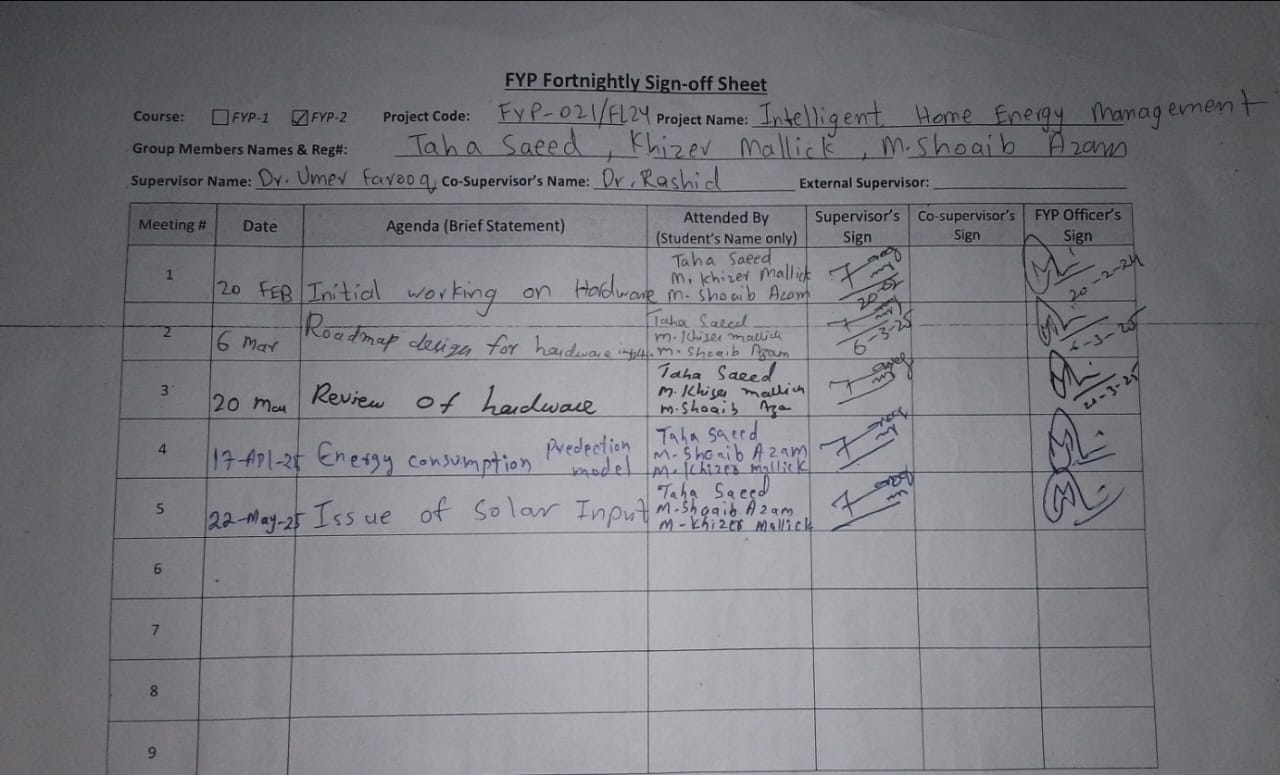 FYP Fortnightly Sign-off Sheet
Course: FYP-1 FYP-2 Project Code: FYP-021/FL24 Project Name: Intelligent Home Energy Management
Group Members Names & Reg#: Taha Saeed, Khizer Mallick, M.Shoaib Azam
Supervisor Name: Dr. Umer Farooq Co-Supervisor's Name: Dr. Rashid External Supervisor:
Meeting # Date Agenda (Brief Statement) Attended By (Student's Name only) Supervisor's Sign Co-supervisor's Sign FYP Officer's Sign
1 20 FEB Initial working on Hardware
Taha Saeed
M. Khizer Mallick
M. Shoaib Azam
20-02
20-2-24
2 6 Mar Roadmap design for hardware
Taha Saeed
M. Khizer Mallick
M. Shoaib Azam
6-3-25
6-3-25
3 20 Mar Review of hardware
Taha Saeed
M. Khizer Mallick
M. Shoaib Aza
20-3-25
4 17-Apl-25 Energy consumption Predection model
Taha Saeed
M. Shoaib Azam
M. Khizer Mallick
5 22-May-25 Issue of Solar Input
Taha Saeed
M. Shoaib Azam
M- Khizer Mallick
6
7
8
9